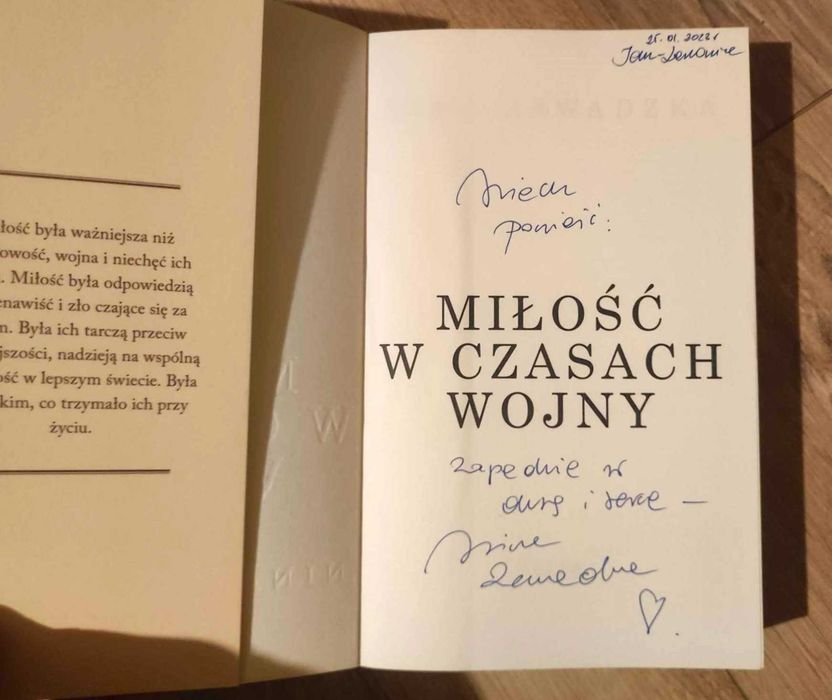 łość była ważniejsza niż
owość, wojna i niechęć ich
. Miłość była odpowiedzią
enawiść i zło czające się za
m. Była ich tarczą przeciw
jszości, nadzieją na wspólną
ość w lepszym świecie. Była
kim, co trzymało ich przy
życiu.
25.01.2022r
Niech
powieść:
MIŁOŚĆ
W CZASACH
WOJNY
zapadnie w
duszę i serce –